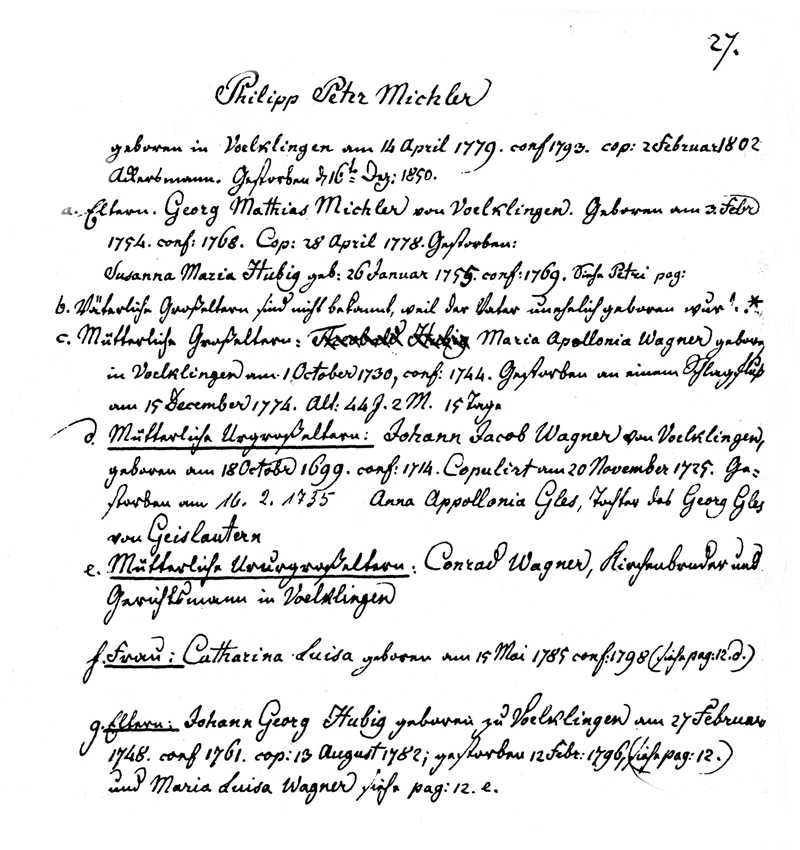 27.
Philipp Peter Michler
geboren in Voelklingen am 14 April 1779. conf 1793. cop: 2 Februar 1802
Ackersmann. Gestorben d 16t Dez: 1850.
a. Eltern. Georg Mathias Michler von Voelklingen. Geboren am 3. Febr
1754. conf: 1768. Cop: 28 April 1778. Gestorben:
Susanna Maria Hubig geb: 26 Januar 1755. conf: 1769. Siehe Petri pag:
b. Väterliche Großeltern sind nicht bekannt, weil der Vater unehelich geboren wurd. *
c. Mütterliche Großeltern: Theobald Hubig Maria Apollonia Wagner geboren
in Voelklingen am 1 October 1730, conf: 1744. Gestorben an einem Schlagfluß
am 15 December 1774. Alt: 44 J. 2 M. 15 Tage
d. Mütterliche Urgroßeltern: Johann Jacob Wagner von Voelklingen,
geboren am 18 Octobr 1699. conf: 1714. Copulirt am 20 November 1725. Ge-
storben am 16. 2. 1735 Anna Appollonia Gles, Tochter des Georg Gles
von Geislautern
e. Mütterliche Ururgroßeltern: Conrad Wagner, Kirchenbruder und
Gerichtsmann in Voelklingen
f. Frau: Catharina Luisa geboren am 15 Mai 1785 conf: 1798 (siehe pag: 12. d.)
g. Eltern: Johann Georg Hubig geboren zu Voelklingen am 27 Februar
1748. conf 1761. cop: 13 August 1782; gestorben 12 Febr: 1796, (siehe pag: 12.)
und Maria Luisa Wagner siehe pag: 12. e.